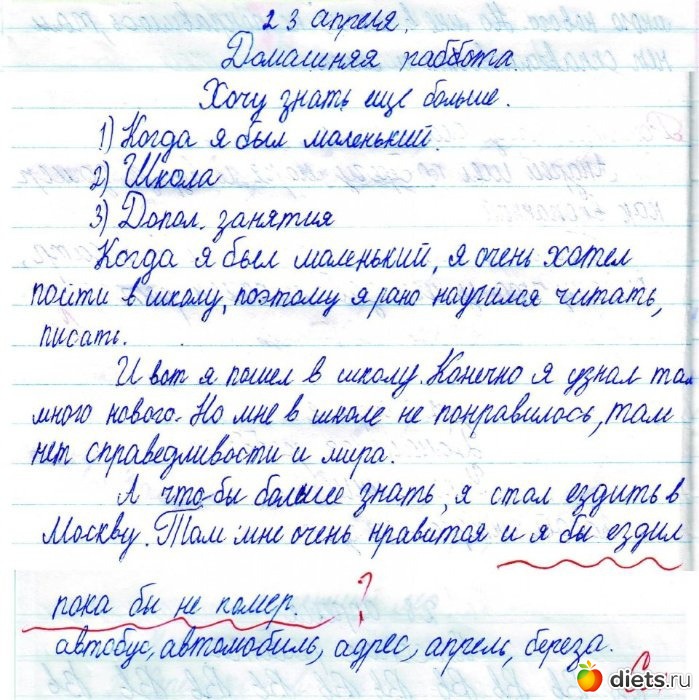 23 апреля.
Домашняя раббота.
Хочу знать еще больше.
1) Когда я был маленький.
2) Школа
3) Допол. занятия
Когда я был маленький, я очень хотел
пойти в школу, поэтому я рано научился читать,
писать.
И вот я пошел в школу. Конечно я узнал там
много нового. Но мне в школе не понравилось, там
нет справедливости и мира.
А что бы больше знать, я стал ездить в
Москву. Там мне очень нравится и я бы ездил
пока бы не помер. ?
автобус, автомобиль, адрес, апрель, береза.
diets.ru